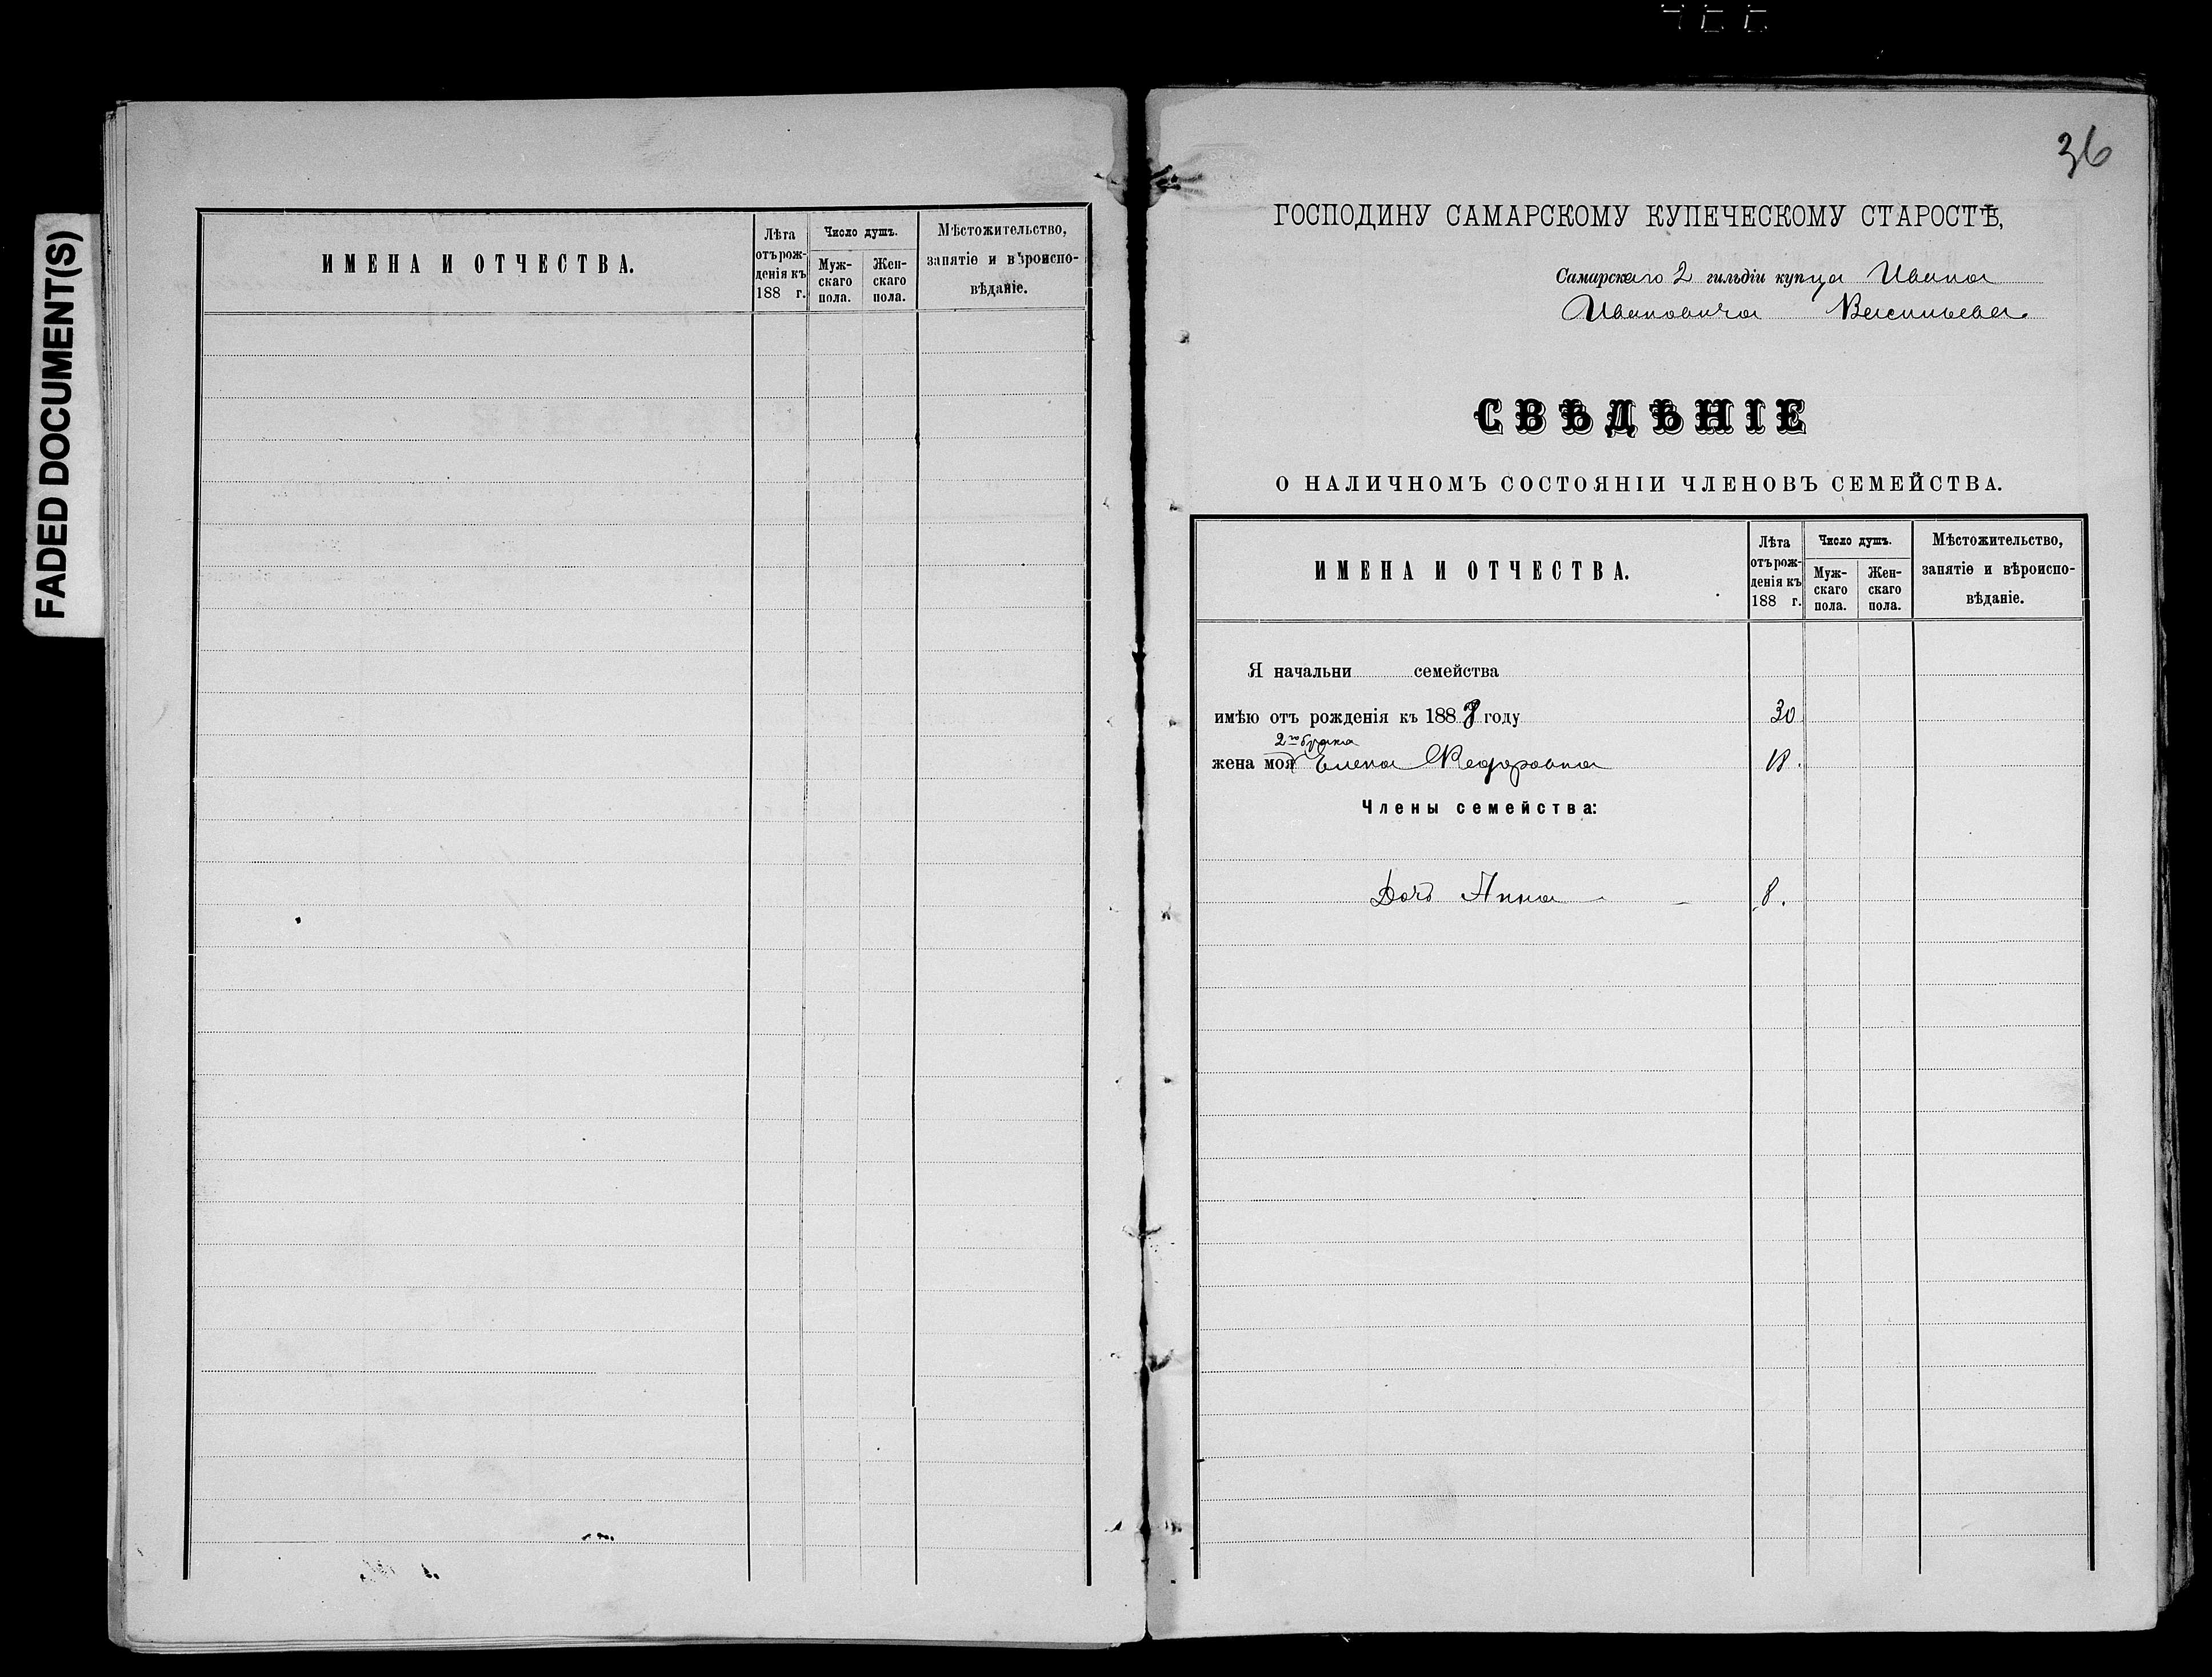 FADED DOCUMENT(S)
ИМЕНА И ОТЧЕСТВА.
Лѣта отъ рожденія къ 188 г.
Число душъ.
Мужскаго пола.
Женскаго пола.
Мѣстожительство, занятіе и вѣроисповѣданіе.
36
ГОСПОДИНУ САМАРСКОМУ КУПЕЧЕСКОМУ СТАРОСТѢ,
Самарскаго 2 гильдіи купца Ивана
Ивановича Васильева.
СВѢДѢНІЕ
О НАЛИЧНОМЪ СОСТОЯНІИ ЧЛЕНОВЪ СЕМЕЙСТВА.
ИМЕНА И ОТЧЕСТВА.
Лѣта отъ рожденія къ 188 г.
Число душъ.
Мужскаго пола.
Женскаго пола.
Мѣстожительство, занятіе и вѣроисповѣданіе.
Я начальни семейства
имѣю отъ рожденія къ 188 году 30
2го брака
жена моя Елена Федоровна 18.
Члены семейства:
Дочь Анна 8.